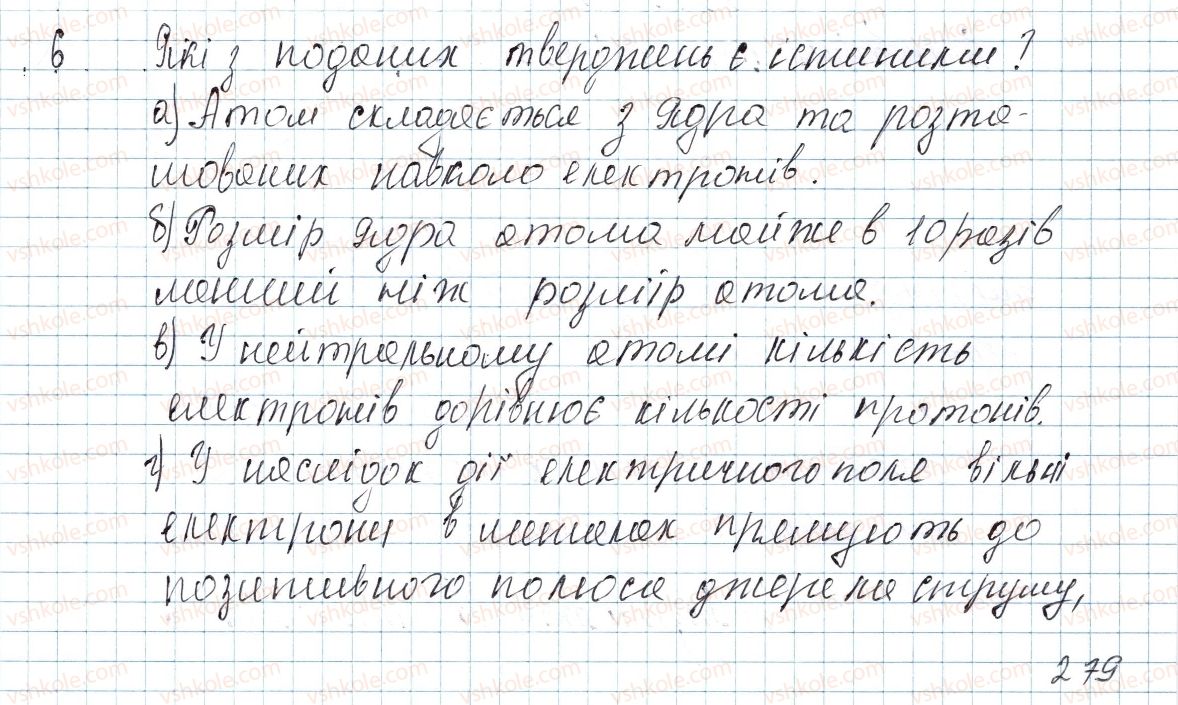 6 Які з поданих тверджень є істиними?
а) Атом складяється з ядра та розта-
шованих навколо електронів.
б) Розмір ядра атома майже в 10 разів
менший ніж розмір атома.
в) У нейтральному атомі кількість
електронів дорівнює кількості протонів.
г) У наслідок дії електричного поля вільні
електрони в металах прямують до
позитивного полюса джерела струму,
279